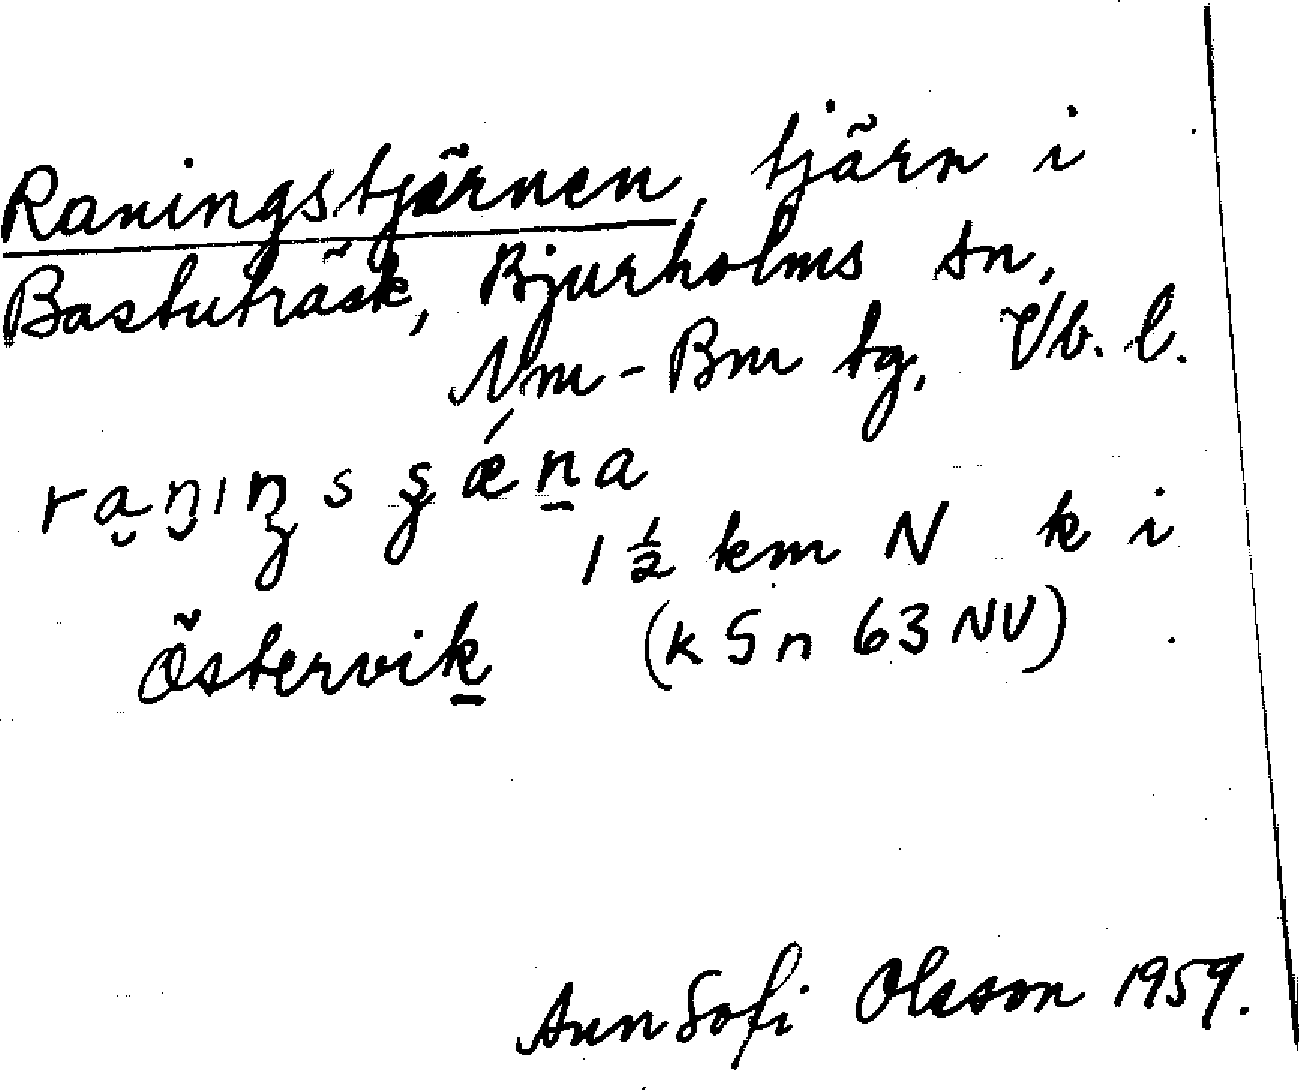 Raningstjärnen, tjärn i
Bastuträsk, Bjurholms sn,
Nm-Bm tg, Vb. l.
1 ½ km N k i
Östervik (k Sn 63 NV)
Ann Sofi Olsson 1959.